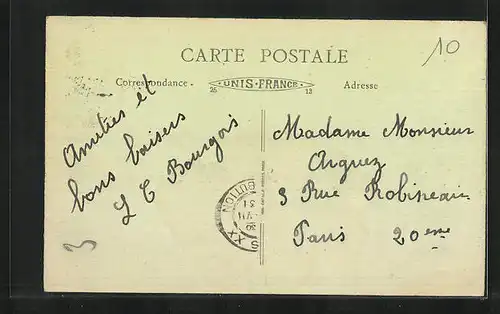 CARTE POSTALE
10
Correspondance.
UNIS-FRANCE
26 13
Adresse
Amitiés et
bons baisers
L C Bourgois
3
Madame Monsieur
3 Rue Robineau
Paris 20eme